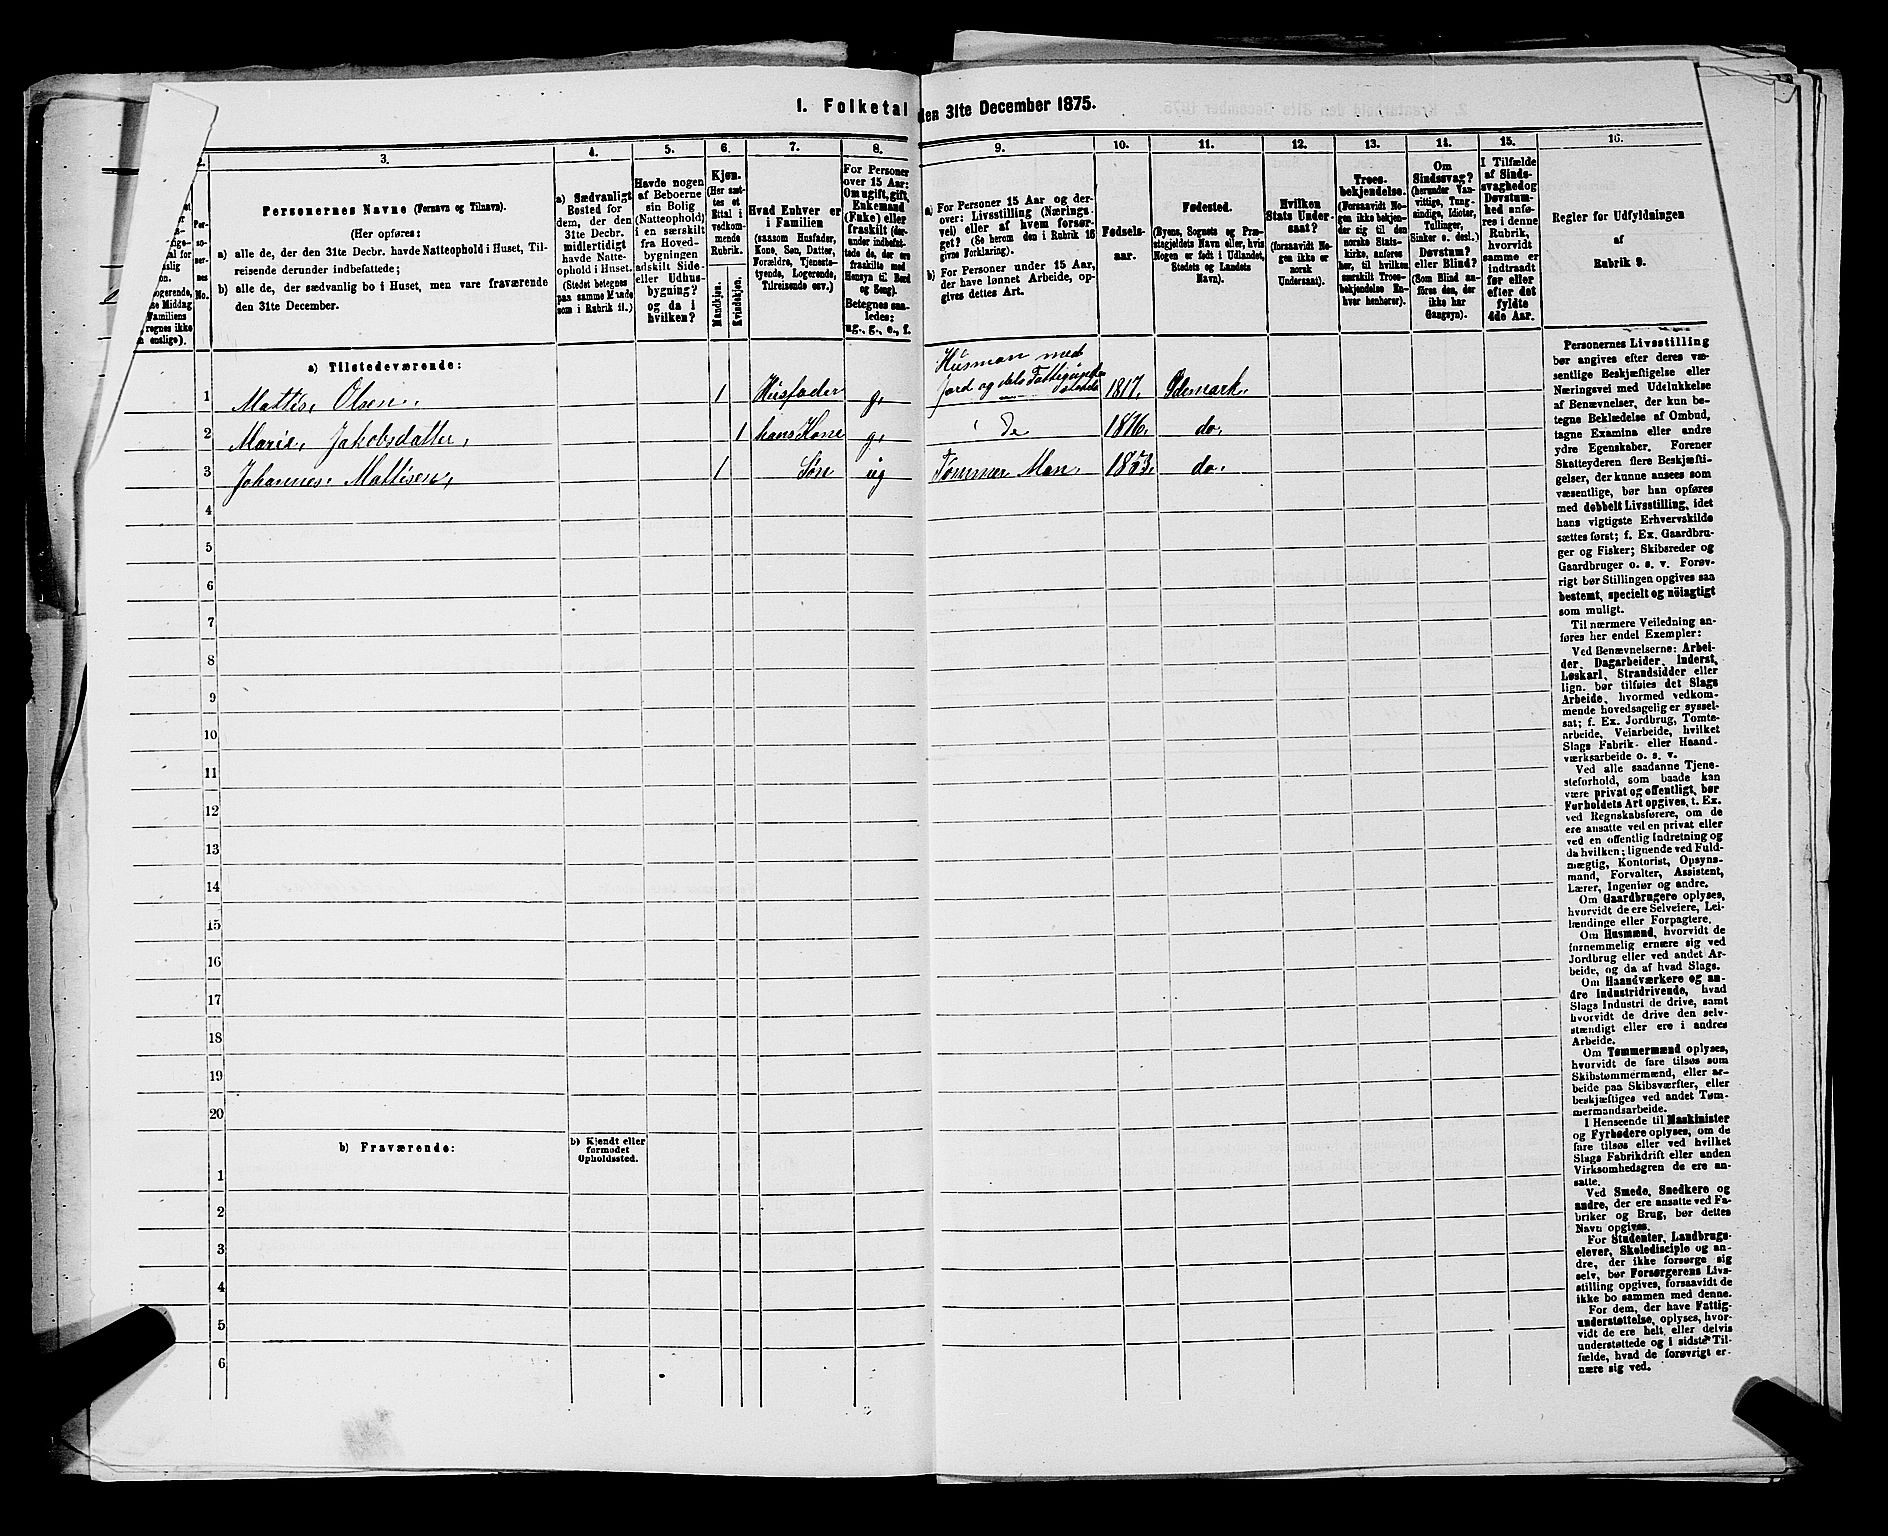 1. Folketal den 31te December 1875.
2. 3. 4. 5. 6. 7. 8. 9. 10. 11. 12. 13. 14. 15. 16.
Per-
so-
ner-
nes
No.
Personernes Navne (Fornavn og Tilnavn).
(Her opføres:
a) alle de, der den 31te Decbr. havde Natteophold i Huset, Til-
reisende derunder indbefattede;
b) alle de, der sædvanlig bo i Huset, men vare fraværende
den 31te December.
a) Sædvanligt
Bosted for
dem, der den
31te Decbr.
midlertidigt
havde Natte-
ophold i Huset.
(Stedet betegnes
paa samme Maade
som i Rubrik 11.)
Havde nogen
af Beboerne
sin Bolig
(Natteophold)
i en særskilt
fra Hoved-
bygningen
adskilt Side-
eller Udhus-
bygning?
og da i
hvilken?
Kjøn.
(Her sæt-
tes et
Ettal i
vedkom-
mende
Rubrik.
Mandkjøn.
Kvindekjøn.
Hvad Enhver er
i Familien
(saasom Husfader,
Kone, Søn, Datter,
Forældre, Tjeneste-
tyende, Logerende,
Tilreisende osv.)
For Personer
over 15 Aar:
Om ugift, gift,
Enkemand
(Enke) eller
fraskilt (der-
under indbefat-
tede de, der ere
fraskilte med
Hensyn til Bord
og Seng).
Betegnes saa-
ledes:
ug., g., e., f.
a) For Personer 15 Aar og der-
over: Livsstilling (Nærings-
vei) eller af hvem forsør-
get? (Se herom den i Rubrik 16
givne Forklaring).
b) For Personer under 15 Aar,
der have lønnet Arbeide, op-
gives dettes Art.
Fødsels-
aar.
Fødested.
(Byens, Sognets og Præ-
stegjeldets Navn eller, hvis
Nogen er født i Udlandet,
Stedets og Landets
Navn).
Hvilken
Stats Under-
saat?
(forsaavidt No-
gen ikke er
norsk
Undersaat).
Troes-
bekjendelse.
(Forsaavidt No-
gen ikke bekjen-
der sig til den
norske Stats-
kirke, anføres
her, til hvilken
særskilt Troes-
bekjendelse En-
hver henhører).
Om
Sindssvag?
(herunder Van-
vittige, Tung-
sindige, Idioter,
Tullinger,
Sinker o. desl.)
Døvstum?
eller Blind?
(Som Blind an-
føres den, der
ikke har
Gangsyn).
I Tilfælde
af Sinds-
svaghed og
Døvstum-
hed anfø-
res i denne
Rubrik,
hvorvidt
samme er
indtraadt
før eller
efter det
fyldte
4de Aar.
Regler for Udfyldningen
af
Rubrik 9.
a) Tilstedeværende:
1 Mattis, Olsen, 1 Husfader g, Husman med Jord og dels 1817, Ødemark.
2 Marie, Jakobsdatter, 1 hans Kone g, 1816, do,
3 Johannes, Mattisen, 1 Søn ug Tømmer Man, 1853, do.
4
5
6
7
8
9
10
11
12
13
14
15
16
17
18
19
20
b) Fraværende:
b) Kjendt eller
formodet
Opholdssted.
1
2
3
4
5
6
Personernes Livsstilling
bør angives efter deres væ-
sentlige Beskjæftigelse eller
Næringsvei med Udelukkelse
af Benævnelser, der kun be-
tegne Beklædelse af Ombud,
tagne Examina eller andre
ydre Egenskaber. Forener
Skatteyderen flere Beskjæfti-
gelser, der kunne ansees som
væsentlige, bør han opføres
med dobbelt Livsstilling, idet
hans vigtigste Erhvervskilde
sættes først; f. Ex. Gaardbru-
ger og Fisker; Skibsreder og
Gaardbruger o. s. v. Forøv-
rigt bør Stillingen opgives saa
bestemt, specielt og nöiagtigt
som muligt.
Til nærmere Veiledning an-
føres her endel Exempler:
Ved Benævnelserne: Arbei-
der, Dagarbeider, Inderst,
Løskarl, Strandsidder eller
lign. bør tilføies det Slags
Arbeide, hvormed vedkom-
mende hovedsagelig er syssel-
sat; f. Ex. Jordbrug, Tomte-
arbeide, Veiarbeide, hvilket
Slags Fabrik- eller Haand-
værksarbeide o. s. v.
Ved alle saadanne Tjene-
steforhold, som baade kan
være privat og offentligt, bør
Forholdets Art opgives, t. Ex.
ved Regnskabsførere, om de
ere ansatte ved en privat eller
ved en offentlig Indretning og
da hvilken; lignende ved Fuld-
mægtig, Kontorist, Opsyns-
mand, Forvalter, Assistent,
Lærer, Ingeniør og andre.
Om Gaardbrugere oplyses,
hvorvidt de ere Selveiere, Lei-
lændinge eller Forpagtere.
Om Husmænd, hvorvidt de
fornemmelig ernære sig ved
Jordbrug eller ved andet Ar-
beide, og da af hvad Slags.
Om Haandværkere og an-
dre industridrivende, hvad
Slags Industri de drive, samt
hvorvidt de drive den selv-
stændigt eller ere i andres
Arbeide.
Om Tømmermænd oplyses,
hvorvidt de fare tilsøs som
Skibstømmermænd, eller ar-
beide paa Skibsværfter, eller
beskjæftiges ved andet Tøm-
mermandsarbeide.
I Henseende til Maskinister
og Fyrbødere oplyses, om de
fare tilsøs eller ved hvilket
Slags Fabrikdrift eller anden
Virksomhedsgren de ere an-
satte.
Ved Smede, Snedkere og
andre, der ere ansatte ved Fa-
briker og Brug, bør dettes
Navn opgives.
For Studenter, Landbrugs-
elever, Skoledisciple og an-
dre, der ikke forsørge sig
selv, bør Forsørgerens Livs-
stilling opgives, forsaavidt de
ikke bo sammen med denne.
For dem, der have Fattig-
understøttelse, oplyses, hvor-
vidt de ere helt eller delvis
understøttede og i sidste Til-
fælde, hvad de forøvrigt er-
nære sig ved.